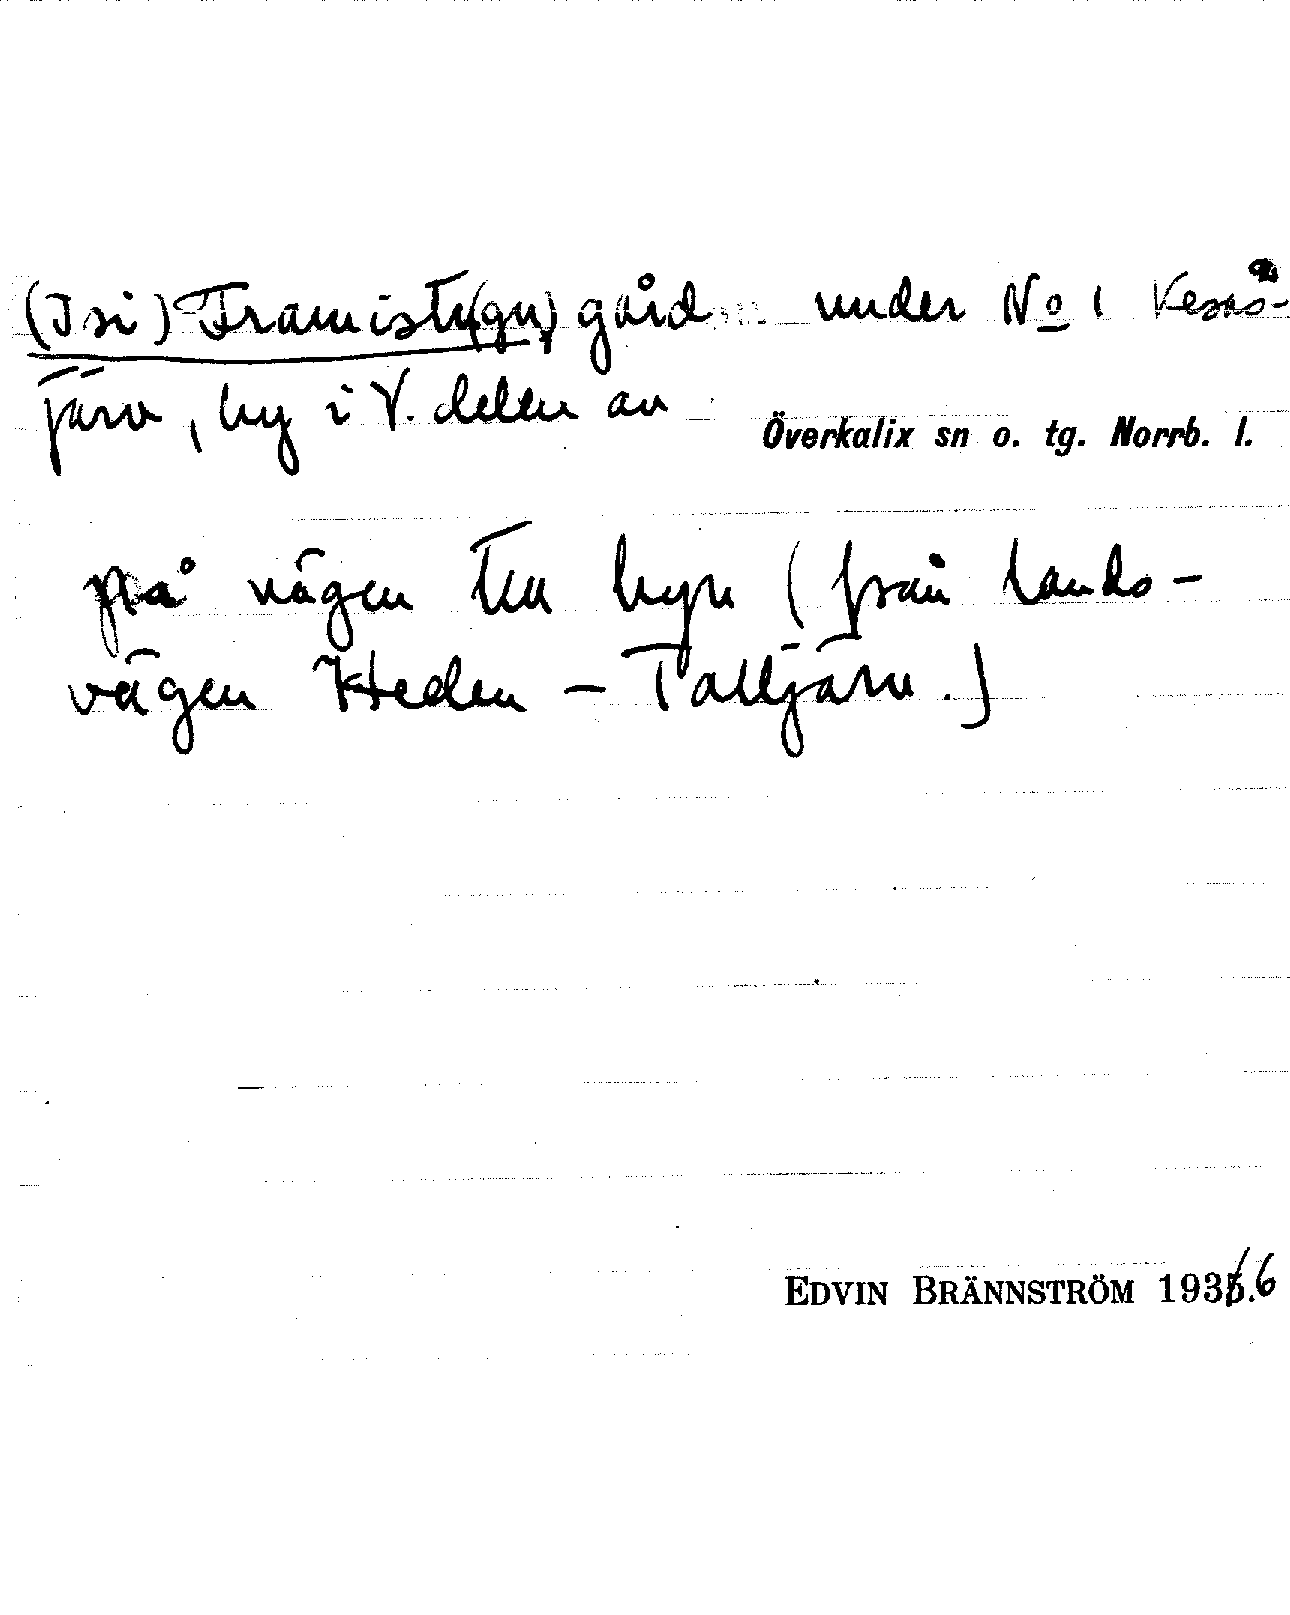 (Isi) Framisty(gn), gård under No 1 Kesås-
järv, by i V. delen av
Överkalix sn o. tg. Norrb. l.
på vägen till byn (från lands-
vägen Heden – Talljärv.)
EDVIN BRÄNNSTRÖM 1936.